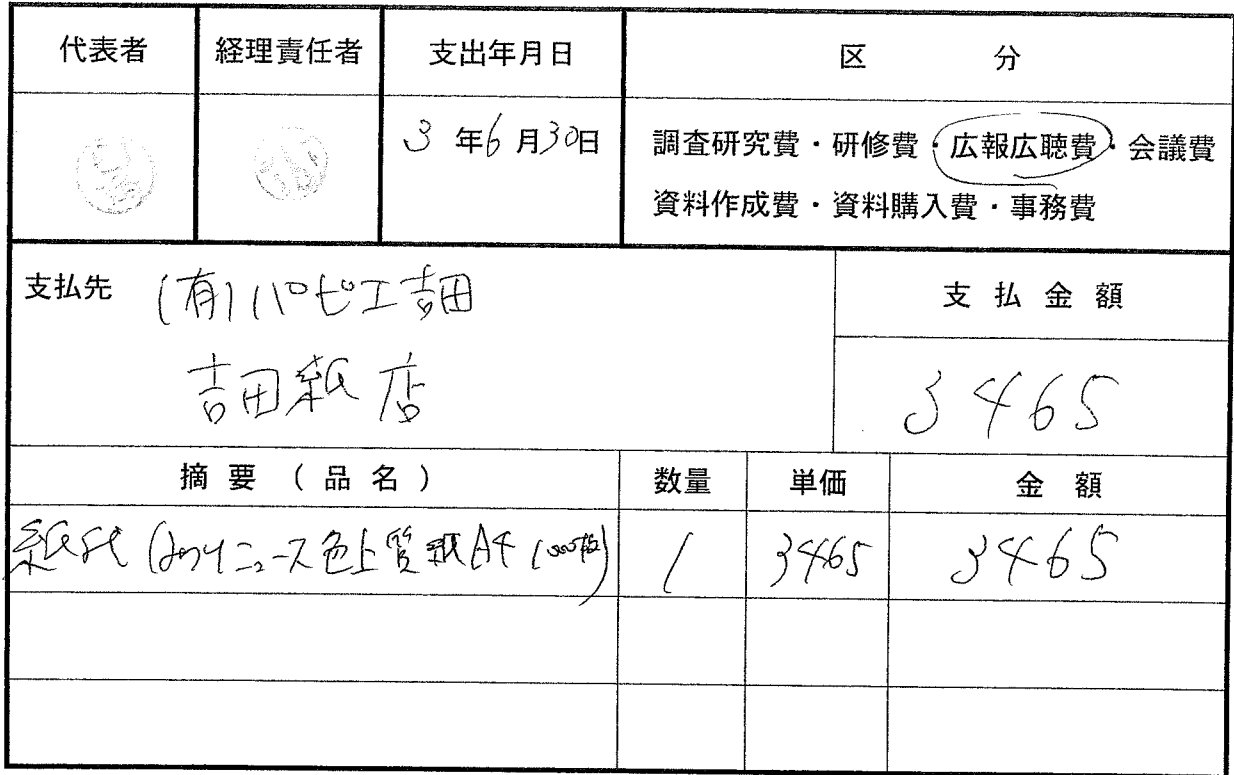 代表者 経理責任者 支出年月日 区分
3年6月30日 調査研究費・研修費・広報広聴費・会議費
資料作成費・資料購入費・事務費
支払先 (有)パピエ吉田 支払金額
吉田紙店 3465
摘要(品名) 数量 単価 金額
紙代 ニュース色上質紙A4 1000枚) 1 3465 3465